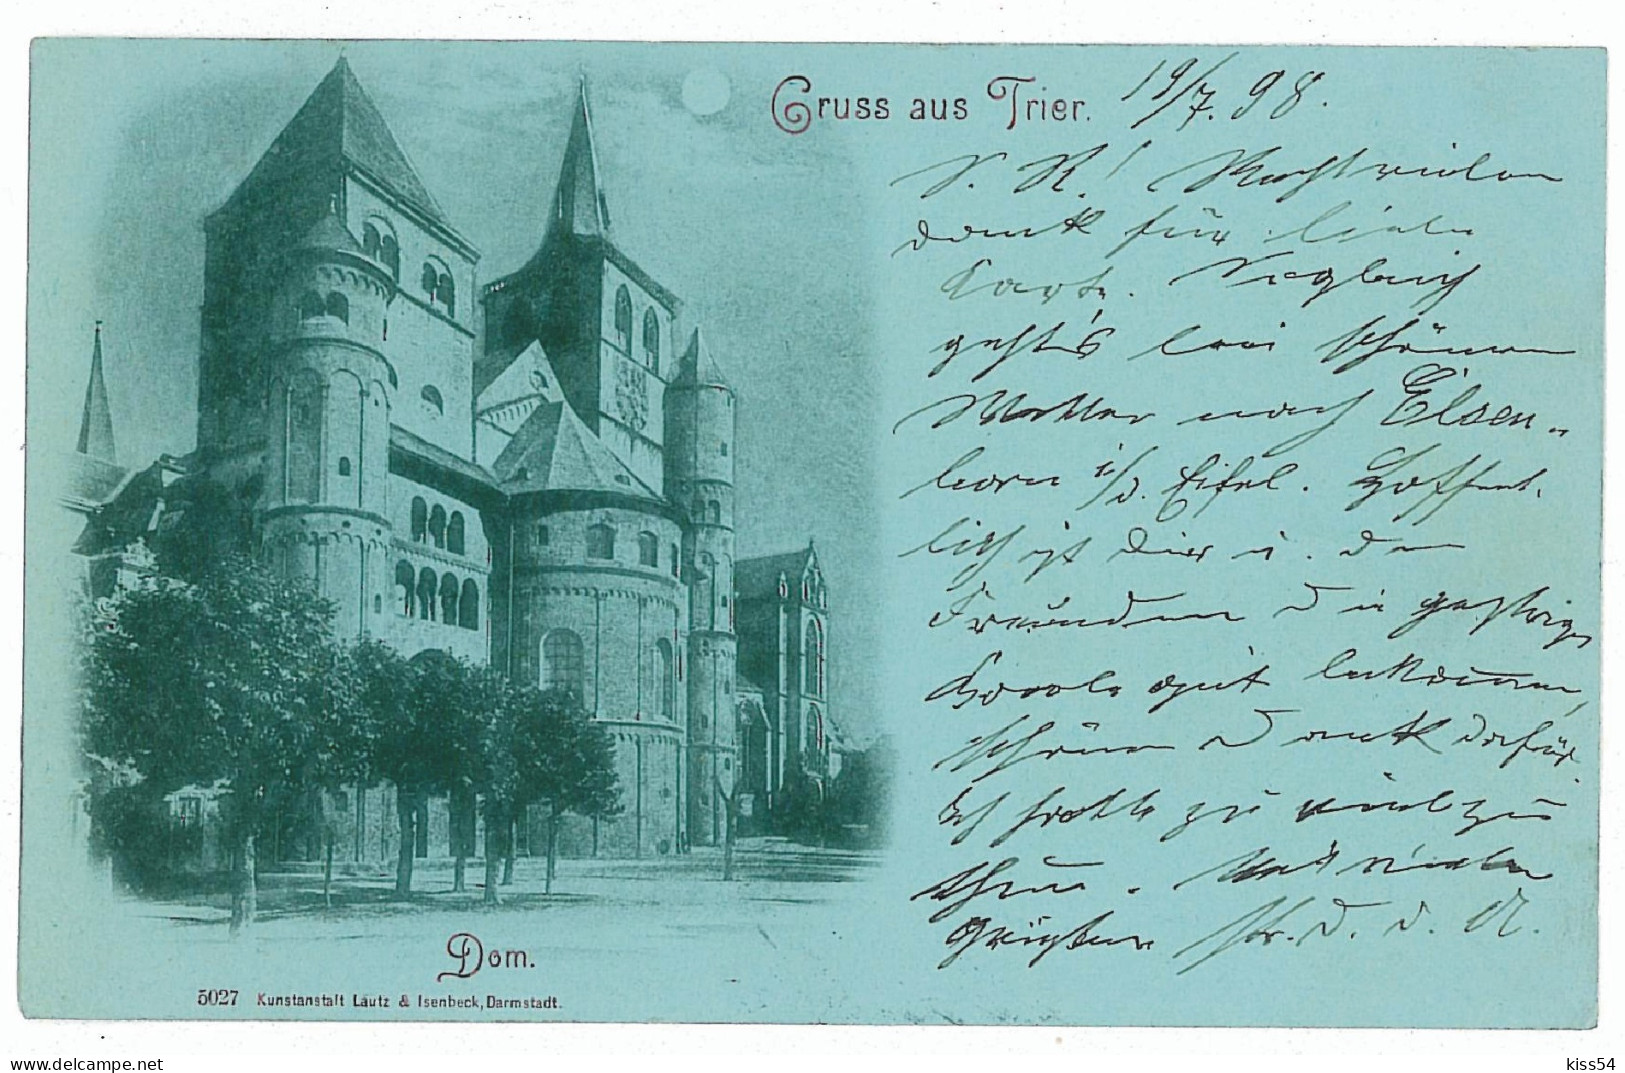 Gruss aus Trier. 19/7. 98.
L. R.! Recht vielen
Dank für liebe
Karte. Sogleich
geht's bei schönem
Wetter nach Elsen-
born i/d. Eifel. Hoffent-
lich ist Dir u. den
Freunden die gestrige
gut bekommen,
schönen Dank dafür.
Ich hatte zu viel zu
thun. Mit vielen
Grüßen
Dom.
5027 Kunstanstalt Lautz & Isenbeck, Darmstadt.
delcampe.net
kiss54